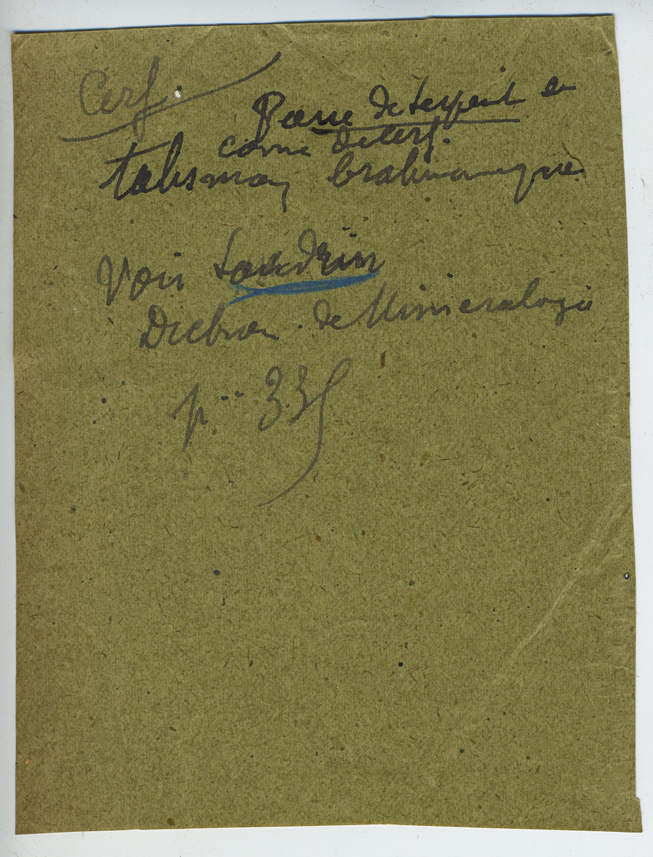 Cerf.
Pierre de Serpent en
corne de cerf.
talisman brahmanique
Voir Landrin
Diction. de Mineralogie
p. 335